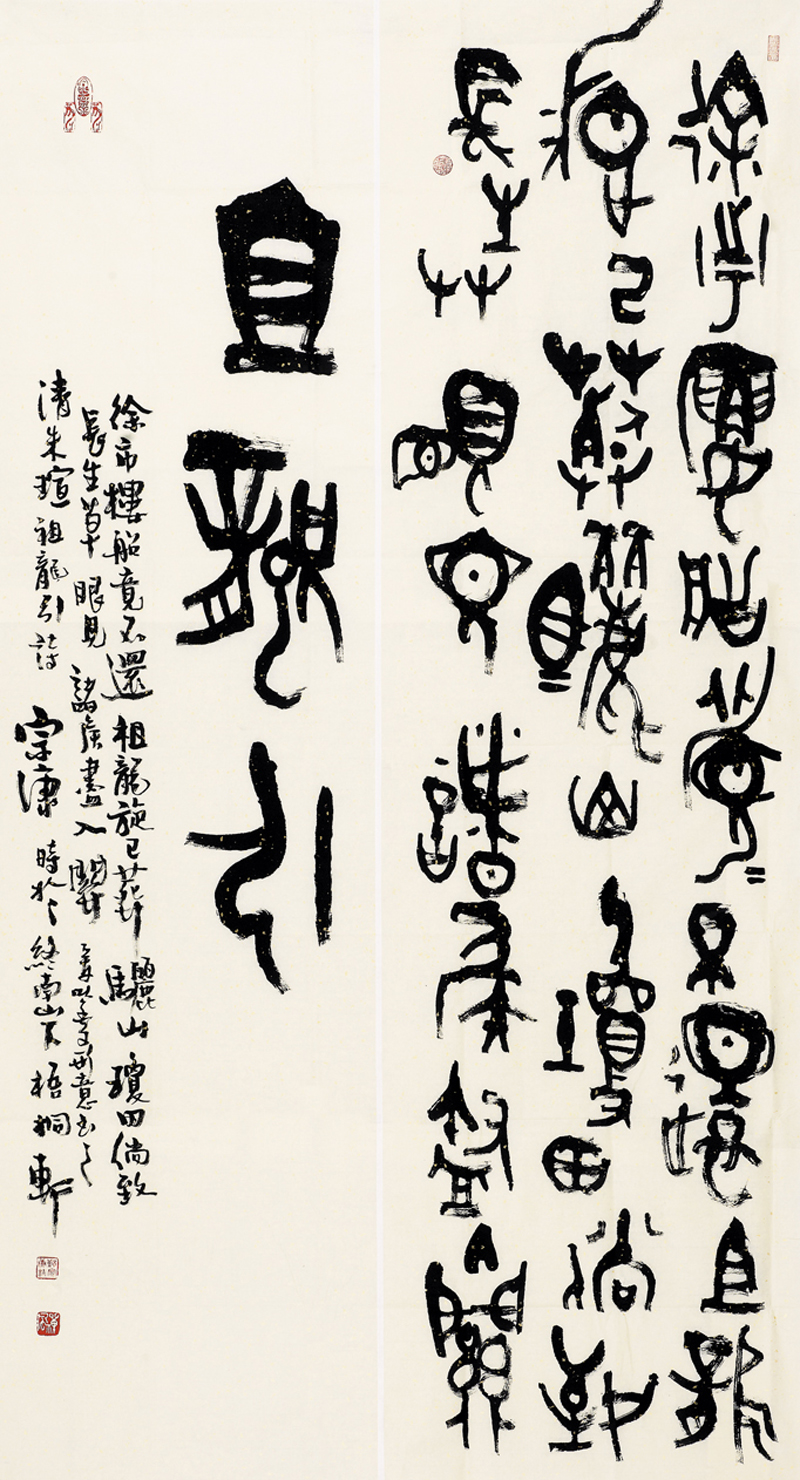 徐市樓船竟不還祖龍
旋已葬驪山瓊田倘致
長生草眼見諸侯盡入關
祖龍引
徐市樓船竟不還祖龍旋已葬驪山瓊田倘致
長生草眼見諸侯盡入關 形意書之
清朱瑄祖龍引詩 宗康 時於終南山下梧桐軒